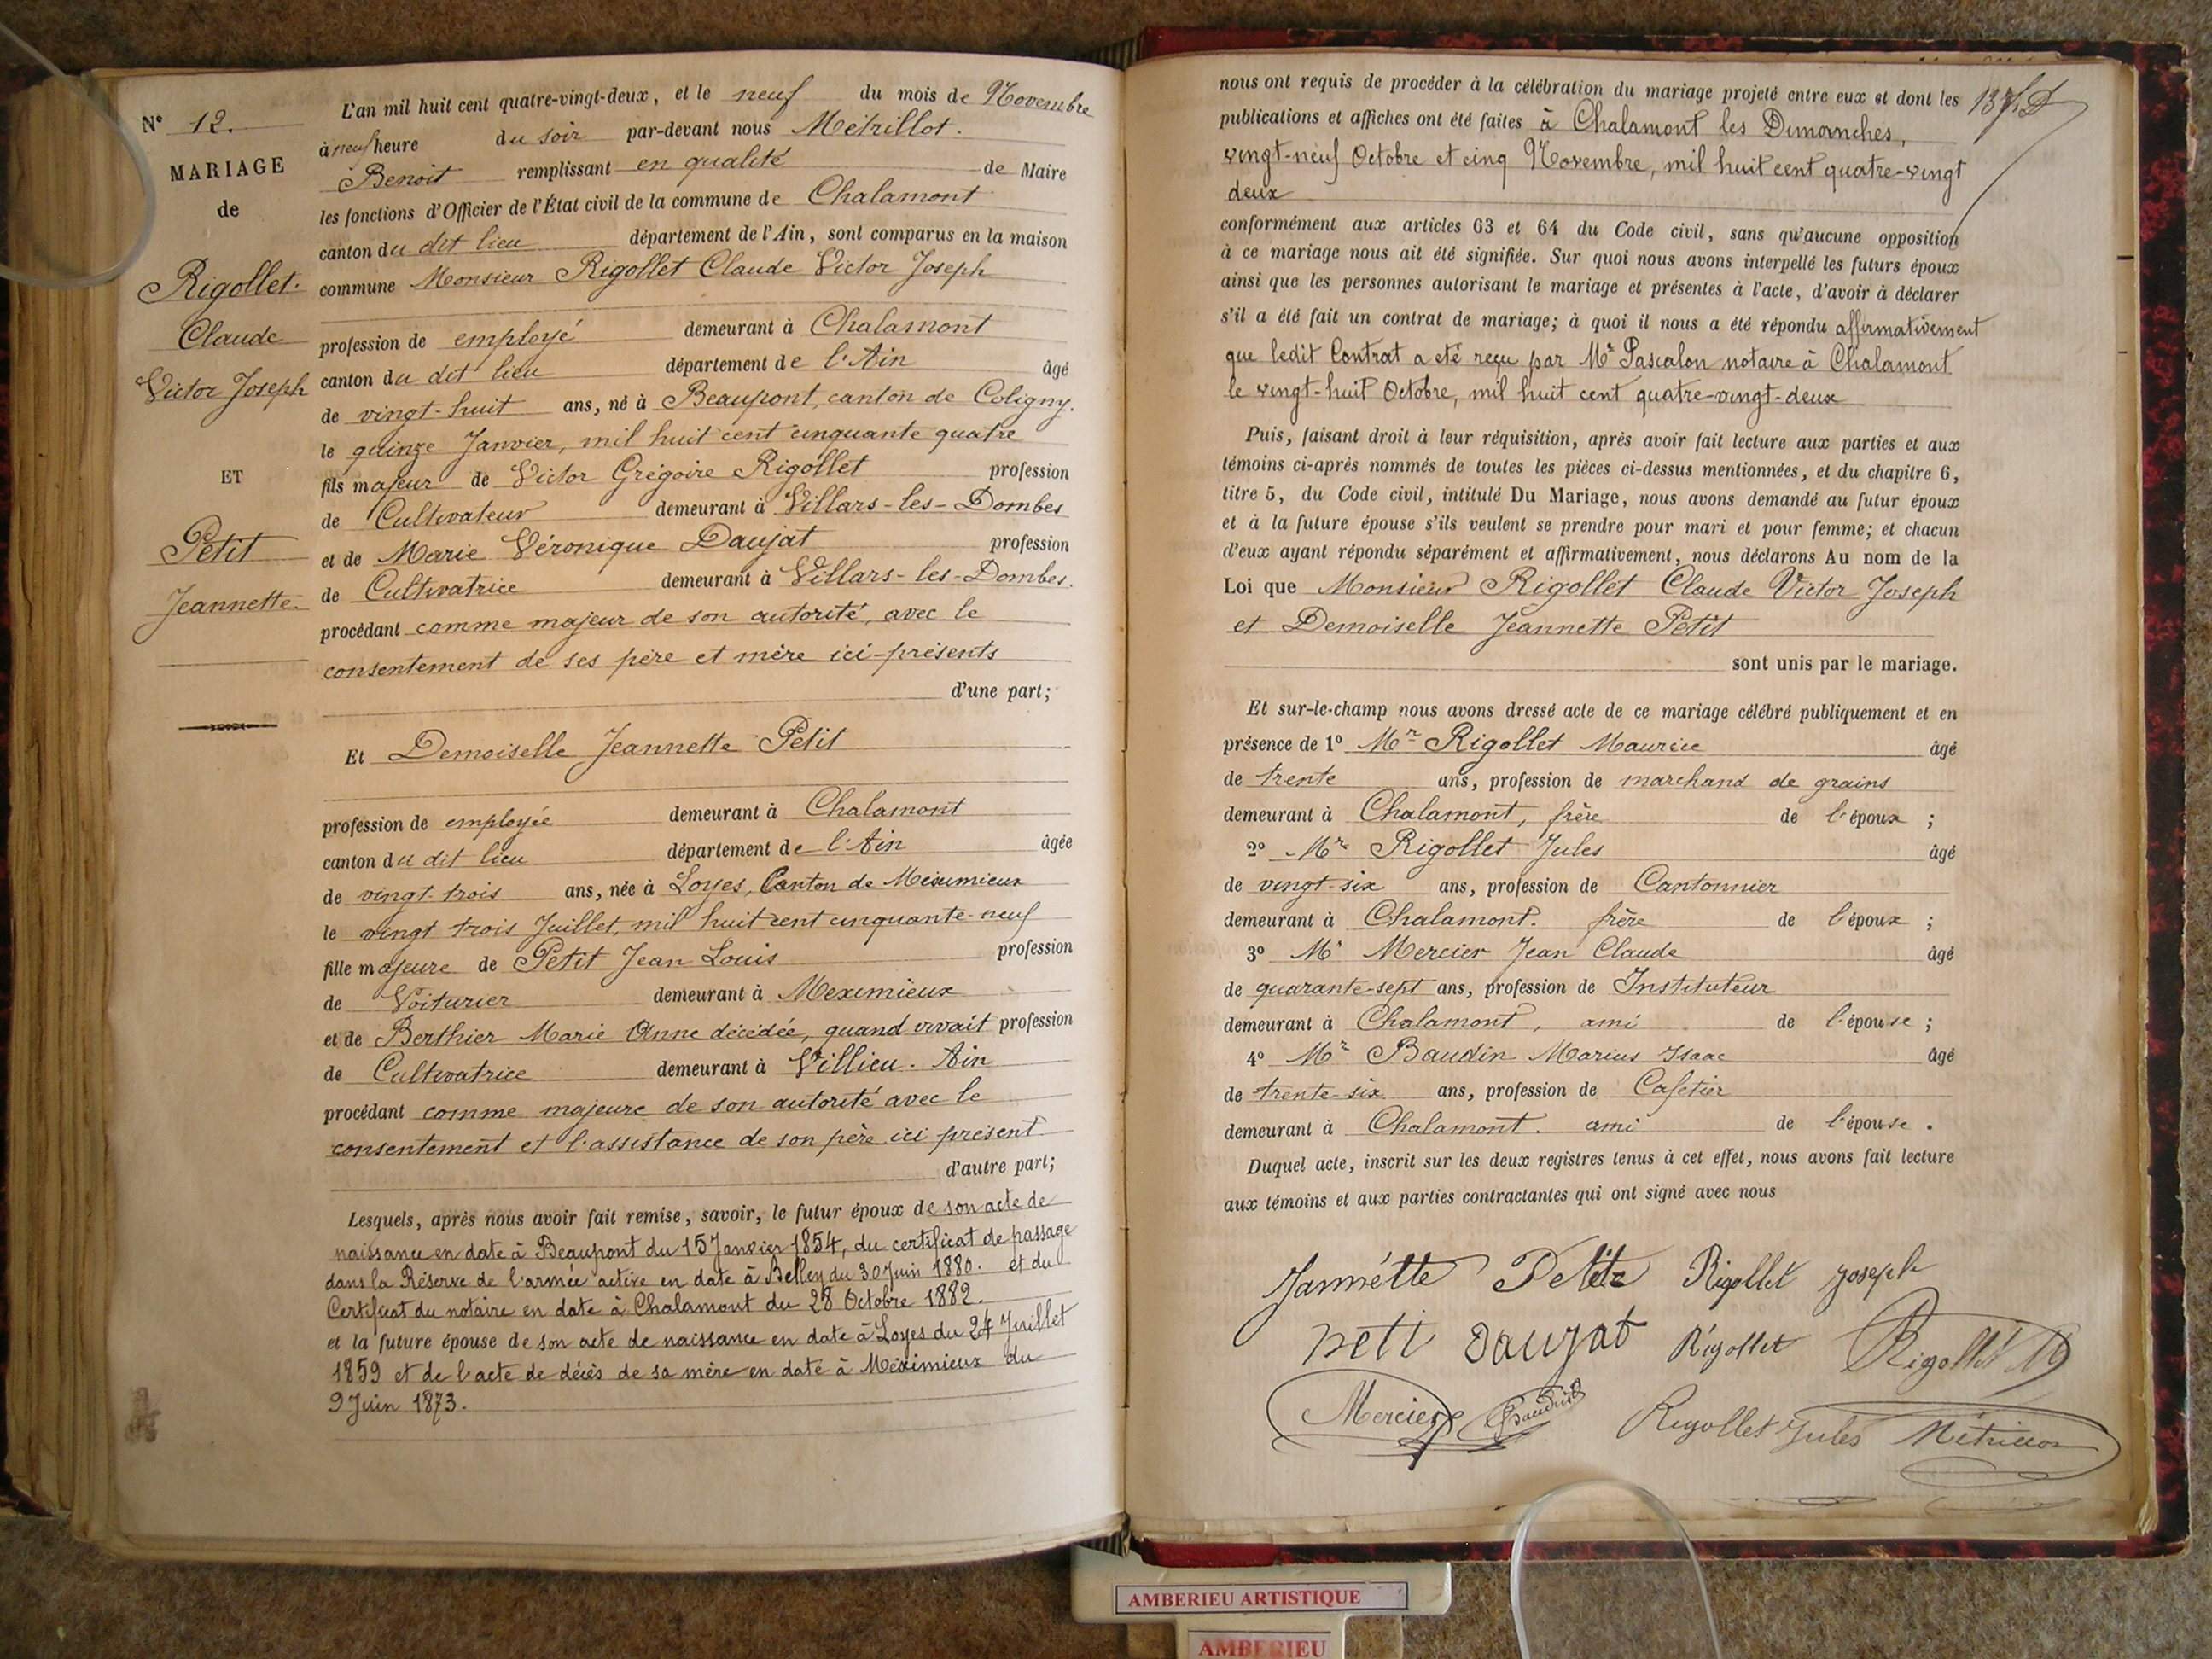 N° 12.
MARIAGE
de
Rigollet.
Claude
Victor Joseph
ET
Petit
Jeannette.
L'an mil huit cent quatre-vingt-deux, et le neuf du mois de Novembre
à neuf heure du soir par-devant nous Métrillot.
Benoit remplissant en qualité de Maire
les fonctions d'Officier de l'État civil de la commune de Chalamont
canton du dit lieu département de l'Ain, sont comparus en la maison
commune Monsieur Rigollet Claude Victor Joseph
profession de employé demeurant à Chalamont
canton du dit lieu département de l'Ain âgé
de vingt-huit ans, né à Beaupont, canton de Coligny.
le quinze Janvier, mil huit cent cinquante quatre
fils majeur de Victor Grégoire Rigollet profession
de Cultivateur demeurant à Villars-les-Dombes
et de Marie Véronique Daujat profession
de Cultivatrice demeurant à Villars-les-Dombes.
procédant comme majeur de son autorité, avec le
consentement de ses père et mère ici-présents
d'une part;
Et Demoiselle Jeannette Petit
profession de employée demeurant à Chalamont
canton du dit lieu département de l'Ain âgée
de vingt-trois ans, née à Loyes, Canton de Meximieux
le vingt trois Juillet, mil huit cent cinquante-neuf
fille majeure de Petit Jean Louis profession
de Voiturier demeurant à Meximieux
et de Berthier Marie Anne décédée, quand vivait profession
de Cultivatrice demeurant à Villieu. Ain
procédant comme majeure de son autorité avec le
consentement et l'assistance de son père ici présent
d'autre part;
Lesquels, après nous avoir fait remise, savoir, le futur époux de son acte de
naissance en date à Beaupont du 15 Janvier 1854, du certificat de passage
dans la Réserve de l'armée active en date à Belley du 30 Juin 1880. et du
Certificat du notaire en date à Chalamont du 28 Octobre 1882.
et la future épouse de son acte de naissance en date à Loyes du 24 Juillet
1859 et de l'acte de décès de sa mère en date à Méximieux du
9 Juin 1873.
137
nous ont requis de procéder à la célébration du mariage projeté entre eux et dont les
publications et affiches ont été faites à Chalamont les Dimanches,
vingt-neuf Octobre et cinq Novembre, mil huit cent quatre-vingt
deux
conformément aux articles 63 et 64 du Code civil, sans qu'aucune opposition
à ce mariage nous ait été signifiée. Sur quoi nous avons interpellé les futurs époux
ainsi que les personnes autorisant le mariage et présentes à l'acte, d'avoir à déclarer
s'il a été fait un contrat de mariage; à quoi il nous a été répondu affirmativement
que ledit Contrat a eté reçu par Me Pascalon notaire à Chalamont
le vingt-huit Octobre, mil huit cent quatre-vingt-deux
Puis, faisant droit à leur réquisition, après avoir fait lecture aux parties et aux
témoins ci-après nommés de toutes les pièces ci-dessus mentionnées, et du chapitre 6,
titre 5, du Code civil, intitulé Du Mariage, nous avons demandé au futur époux
et à la future épouse s'ils veulent se prendre pour mari et pour femme; et chacun
d'eux ayant répondu séparément et affirmativement, nous déclarons Au nom de la
Loi que Monsieur Rigollet Claude Victor Joseph
et Demoiselle Jeannette Petit
sont unis par le mariage.
Et sur-le-champ nous avons dressé acte de ce mariage célébré publiquement et en
présence de 1° Mr Rigollet Maurice âgé
de trente ans, profession de marchand de grains
demeurant à Chalamont, frère de l'époux ;
2° Mr Rigollet Jules âgé
de vingt-six ans, profession de Cantonnier
demeurant à Chalamont. frère de l'époux ;
3° Mr Mercier Jean Claude âgé
de quarante-sept ans, profession de Instituteur
demeurant à Chalamont, ami de l'épouse ;
4° Mr Baudin Marius Isaac âgé
de trente-six ans, profession de Cafetier
demeurant à Chalamont. ami de l'épouse .
Duquel acte, inscrit sur les deux registres tenus à cet effet, nous avons fait lecture
aux témoins et aux parties contractantes qui ont signé avec nous
Jannétte Petit Rigollet Joseph
petit Daujat Rigollet Rigollet M
Mercier Baudin Rigollet Jules Métrillot
AMBERIEU ARTISTIQUE
AMBERIEU